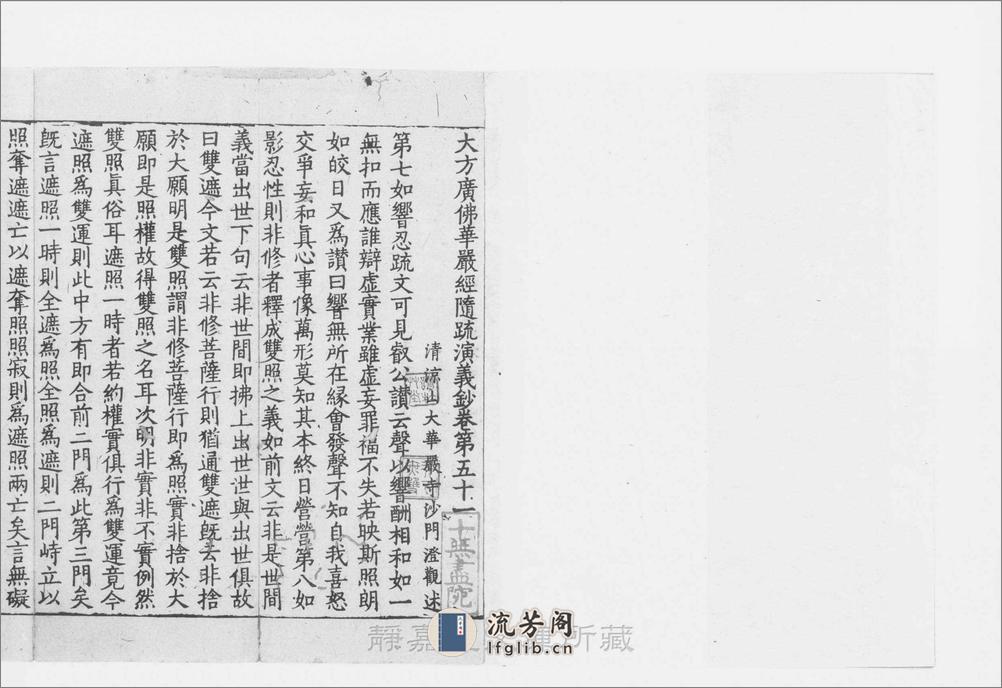 大方廣佛華嚴經隨疏演義鈔卷第五十一
清涼山大華嚴寺沙門澄觀述
第七如響忍疏文可見叡公讚云聲以響酬相和如一
無扣而應誰辯虛實業雖虛妄罪福不失若映斯照朗
如皎日又爲讚曰響無所在緣會發聲不知自我喜怒
交爭妄和眞心事像萬形莫知其本終日營營第八如
影忍性則非修者釋成雙照之義如前文云非是世間
義當出世下句云非世間即拂上出世世與出世俱故
曰雙遮今文若云非修菩薩行則猶通雙遮旣云非捨
於大願明是雙照謂非修菩薩行即爲照實非捨於大
願即是照權故得雙照之名耳次明非實非不實例然
雙照眞俗耳遮照一時者若約權實俱行爲雙運竟今
遮照爲雙運則此中方有即合前二門爲此第三門矣
旣言遮照一時則全遮爲照全照爲遮則二門峙立以
照奪遮遮亡以遮奪照照寂則爲遮照兩亡矣言無礙
十無盡院
靜嘉 所藏
流芳阁
lfglib.cn